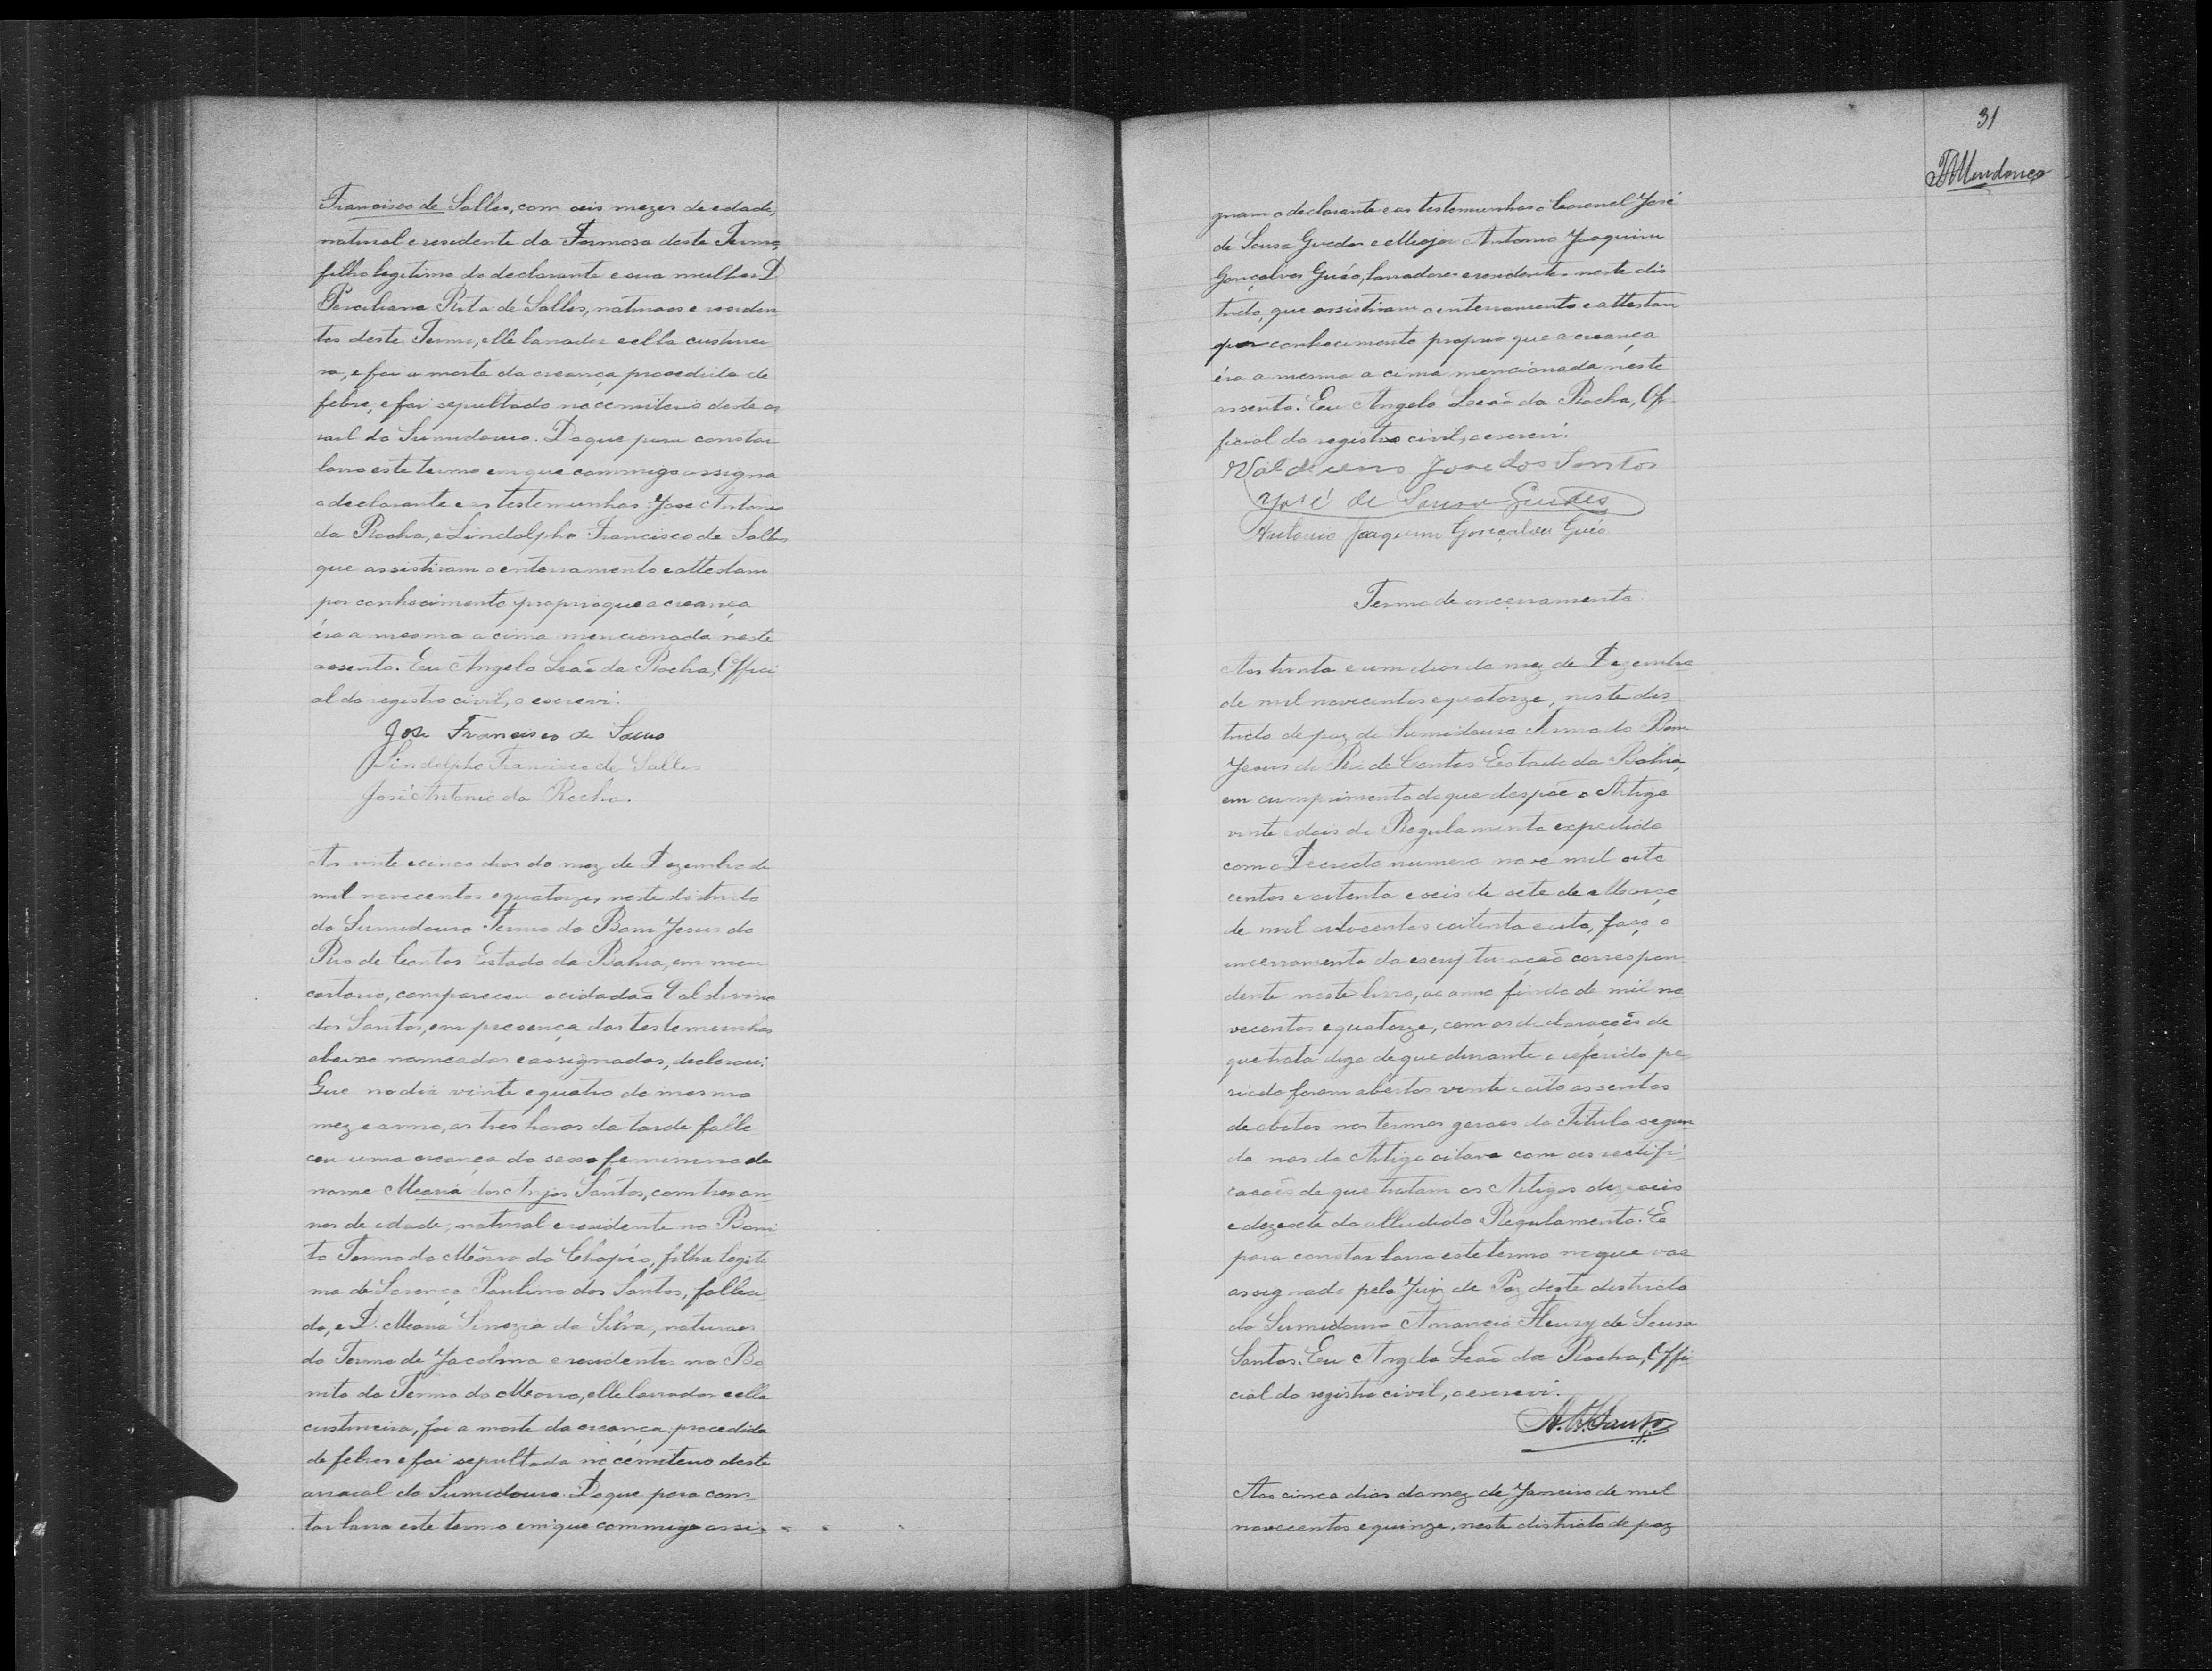 Francisco de Salles, com seis mezes de edade,
natural e residente da Formosa deste Termo,
filho legitimo do declarante e sua mulher D
Perciliana Rita de Salles, naturaes e residen
tes deste Termo, elle lavrador e ella custurei
ra, e foi a morte da creança procedida de
febre, e foi sepultado no cemiterio deste ar
raial do Sumidouro. Do que para constar
lavro este termo em que commigo assigna
o declarante e as testemunhas José Antonio
da Rocha, e Lindolpho Francisco de Salles
que assistiram o enterramento e attestam
por conhecimento proprio que a creança
éra a mesma a cima mencionada neste
assento. Eu Angelo Leão da Rocha, Offici
al do registro civil, o escrevi.
Jose Francisco de
Lindolpho Francisco de Salles
José Antonio da Rocha.
As vinte e cinco dias do mez de Dezembro de
mil novecentos e quatorze, neste districto
do Sumidouro Termo do Bom Jesus do
Rio de Contas Estado da Bahia, em meu
cartorio, compareceu o cidadão Valdivino
dos Santos, em presença das testemunhas
abaixo nomeadas e assignadas, declarou:
Que no dia vinte e quatro do mesmo
mez e anno, as tres horas da tarde falle
ceu uma creança do sexo feminino de
nome Maria dos Anjos Santos, com tres an
nos de edade, natural e residente no Boni
to Termo do Morro do Chapéo, filha legiti
ma de Lorenço Paulino dos Santos, falleci
do, e D. Maria da Silva, naturaes
do Termo de Jacobina e residentes no Bo
nito do Termo do Morro, elle lavrador e ella
custureira, foi a morte da creança procedida
de febres e foi sepultada no cemiterio deste
arraial do Sumidouro. Do que para cons-
tar lavro este termo em que commigo assi-
31
Mendonça
gnam o declarante e as testemunhas o Coronel José
de Sousa Guedes e Major Antonio Joaquim
Gonçalves Guéo, lavradores e residentes neste dis
tricto, que assistiram o enterramento e attestam
por conhecimento proprio que a creança
éra a mesma a cima mencionada neste
assento. Eu Angelo Leão da Rocha, Of-
ficial do registro civil, o escrevi.
José dos Santos
José de Sousa Guedes
Antonio Joaquim Gonçalves Guéo
Termo de encerramento
Aos trinta e um dias do mez de Dezembro
de mil novecentos e quatorze, neste dis-
tricto de paz de Sumidouro Termo do Bom
Jesus do Rio de Contas Estado da Bahia,
em cumprimento do que despõe o Artigo
vinte e dois do Regulamento expedido
com o Decreto numero nove mil oito
centos e oitenta e seis de sete de Março
de mil oitocentos e oitenta e oito, faço o
encerramento da escripturação correspon
dente neste livro, ao anno findo de mil no
vecentos e quatorze, com as declarações de
que trata digo de que durante o referido pe
riodo foram abertos vinte e oito assentos
de obitos nos termos geraes do Titulo segun
do nos do Artigo oitavo com as rectifi-
cações de que tratam os Artigos dezeseis
e dezesete do alludido Regulamento. E
para constar lavro este termo no que vae
assignado pelo Juiz de Paz deste districto
do Sumidouro Amancio Fleury de Sousa
Santos. Eu Angelo Leão da Rocha, Offi
cial do registro civil, o escrevi.
Santos
Aos cinco dias do mez de Janeiro de mil
novecentos e quinze, neste districto de paz